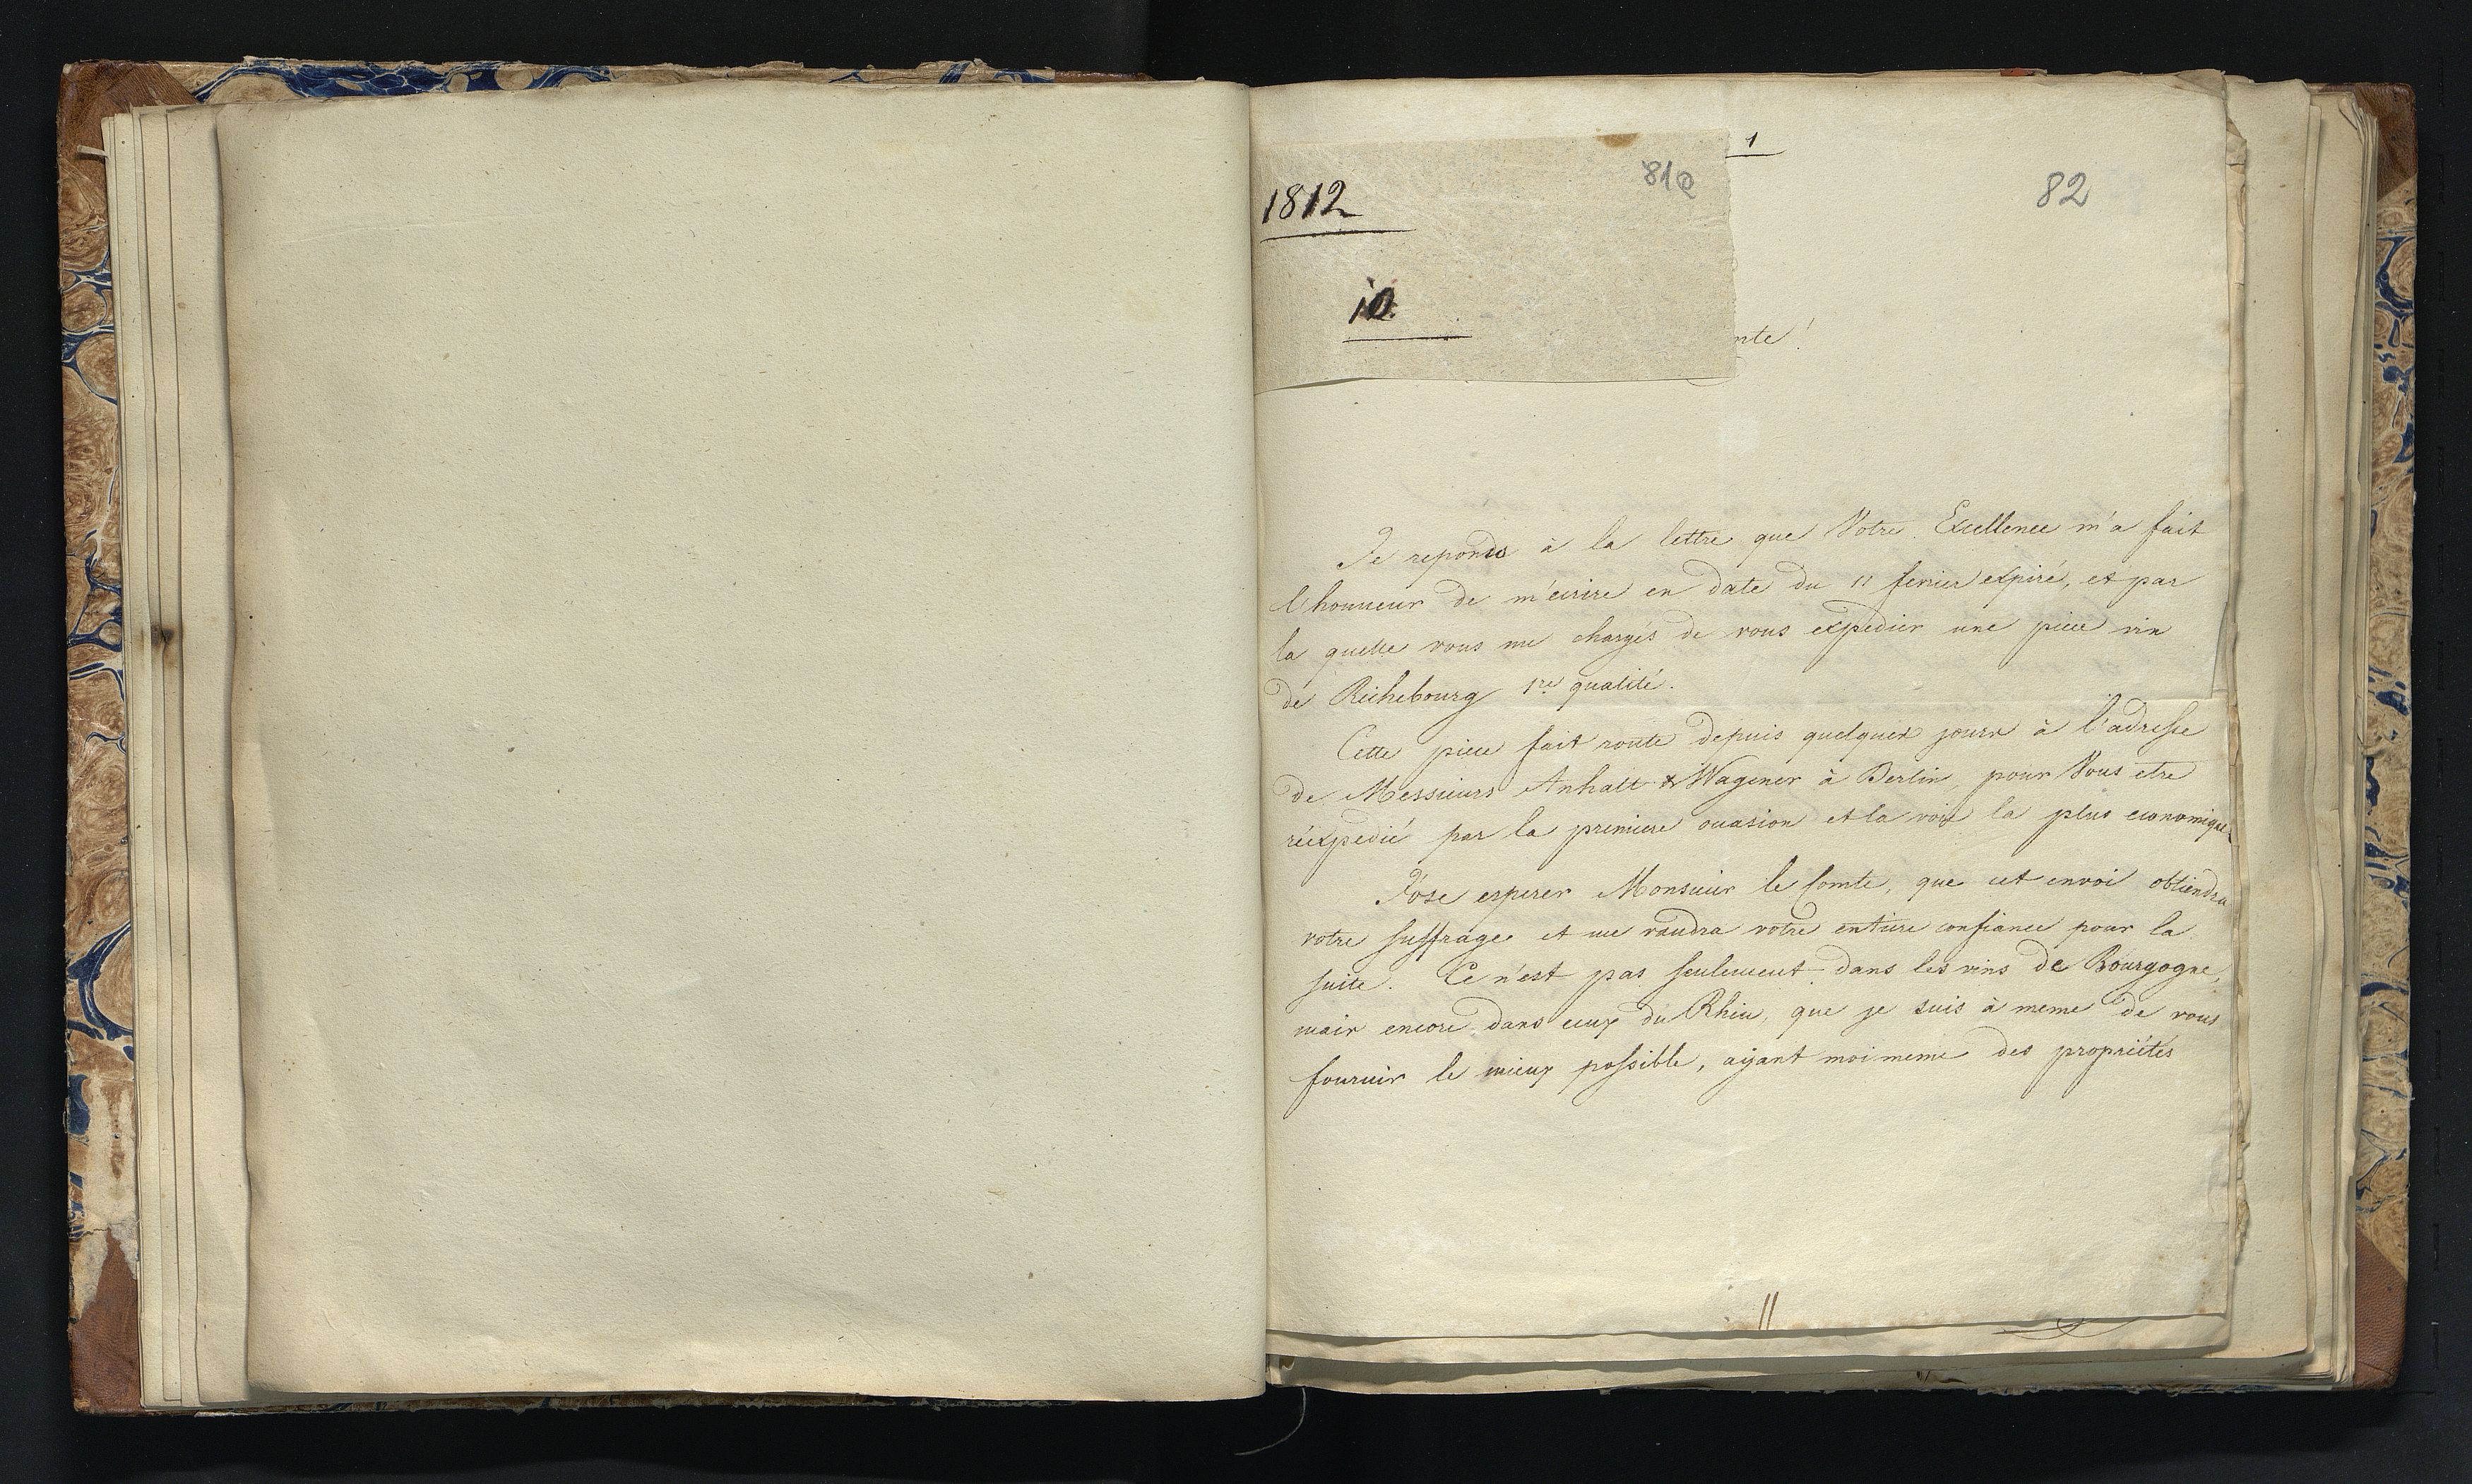 1
1812
81a
82
10.
nte!
Je reponds à la lettre que Votre Excellence m'a fait
l'honneur de m'écrire en date du 11 fevrier expiré, et par
la quelle vous me chargés de vous expedier une piece vin
de Richebourg 1re qualité.
Cette piece fait route depuis quelques jours à l'adresse
de Messieurs Anhalt & Wagener à Berlin, pour Vous etre
réexpedié par la premiere occasion et la voie la plus economique
J'ose esperer Monsieur le Comte, que cet envoi obtiendra
votre suffrage et me vaudra votre entiere confiance pour la
suite. Ce n'est pas seulement dans les vins de Bourgogne,
mais encore dans ceux du Rhin, que je suis à meme de vous
fournir le mieux possible, ayant moi meme des propriétés